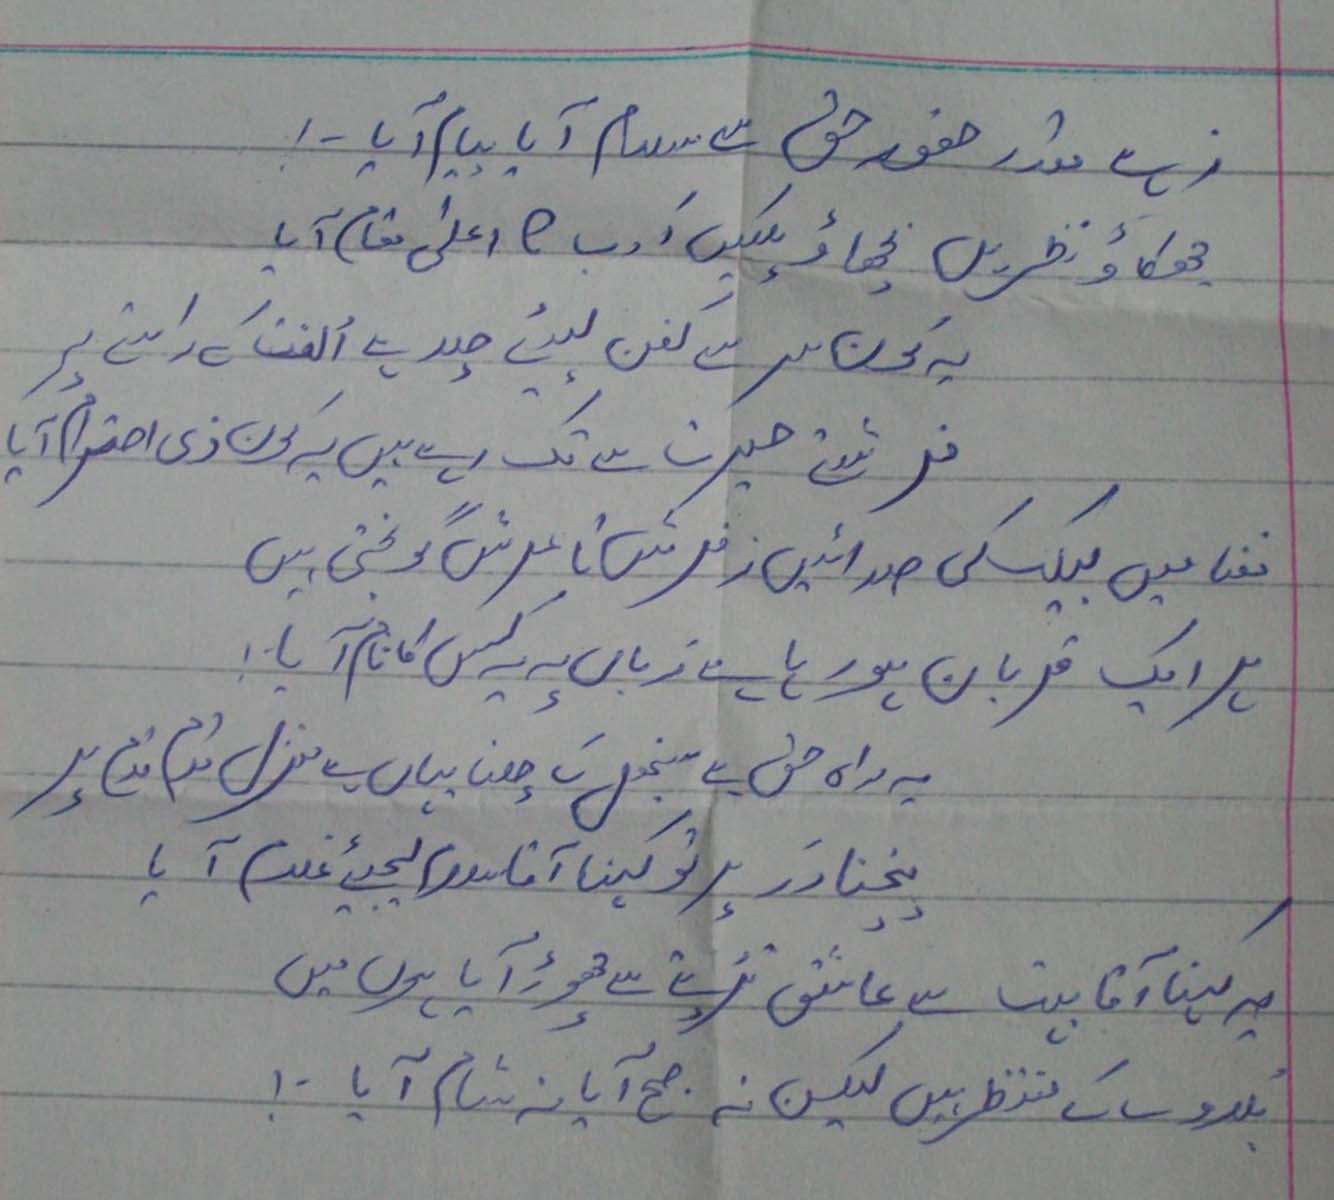 زہے مقدر حضور حق سے سلام آیا پیام آیا -!
جھکاؤ نظریں بچھاؤ پلکیں ادب کا اعلیٰ مقام آیا
یہ کون سر سے کفن لپیٹے چلا ہے اُلفت کے راستے پر
فرشتے حیرت سے تک رہے ہیں یہ کون ذی احترام آیا
فضا میں لبیک کی صدائیں ز فرش تا عرش گونجتی ہیں
ہر ایک قربان ہو رہا ہے زباں پہ یہ کس کا نام آیا -!
یہ راہ حق ہے سنبھل کے چلنا یہاں ہے منزل قدم قدم پر
پہنچنا در پر تو کہنا آقا سلام لیجیئے غلام آیا
یہ کہنا آقا بہت سے عاشق تڑپتے سے چھوڑ آیا ہوں میں
بلاوے کے منتظر ہیں لیکن نہ صبح آیا نہ شام آیا -!